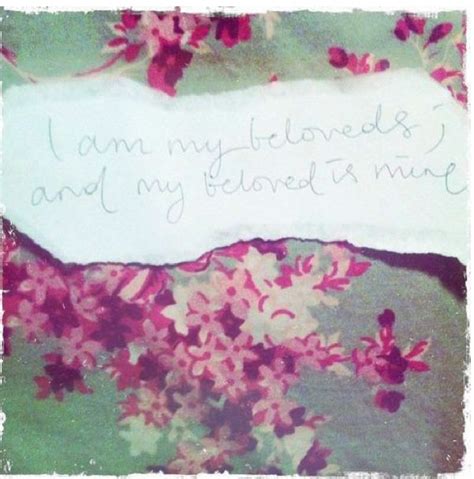 I am my beloveds;
and my beloved is mine